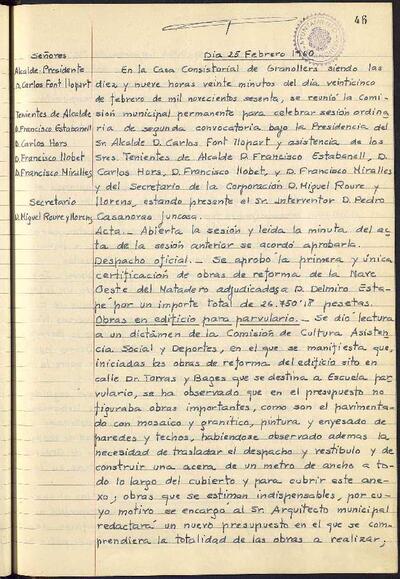 46
Día 25 Febrero 1960
Señores
Alcalde-Presidente
D. Carlos Font Llopart
Tenientes de Alcalde
D. Francisco Estabanell
D. Carlos Hors
D. Francisco Llobet
D. Francisco Miralles
Secretario
D. Miguel Roure y Llorens
En la Casa Consistorial de Granollers siendo las
diez y nueve horas veinte minutos del día veinticinco
de febrero de mil novecientos sesenta, se reunió la Comi-
sión municipal permanente para celebrar sesión ordina-
ria de segunda convocatoria bajo la Presidencia del
Sr. Alcalde D. Carlos Font Llopart y asistencia de los
Sres. Tenientes de Alcalde D. Francisco Estabanell, D.
Carlos Hors, D. Francisco Llobet, y D. Francisco Miralles
y del Secretario de la Corporación D. Miguel Roure y
Llorens, estando presente el Sr. Interventor D. Pedro
Casanovas Juncosa.
Acta.- Abierta la sesión y leida la minuta del ac-
ta de la sesión anterior se acordó aprobarla.
Despacho oficial.- Se aprobó la primera y única
certificación de obras de reforma de la Nave
Oeste del Matadero adjudicadas a D. Delmiro Esta-
pé por un importe total de 26.750'18 pesetas.
Obras en edificio para parvulario.- Se dió lectura
a un dictámen de la Comisión de Cultura Asisten-
cia Social y Deportes, en el que se manifiesta que,
iniciadas las obras de reforma del edificio sito en
calle Dr. Torras y Bages que se destina a Escuela par-
vulario, se ha observado que en el presupuesto no
figuraba obras importantes, como son el pavimenta-
do con mosaico y granítico, pintura y enyesado de
paredes y techos, habiendose observado ademas la
necesidad de trasladar el despacho y vestíbulo y de
construir una acera de un metro de ancho a to-
do lo largo del cubierto y para cubrir este ane-
xo; obras que se estiman indispensables, por cu-
yo motivo se encargó al Sr. Arquitecto municipal
redactará un nuevo presupuesto en el que se com-
prendiera la totalidad de las obras a realizar;